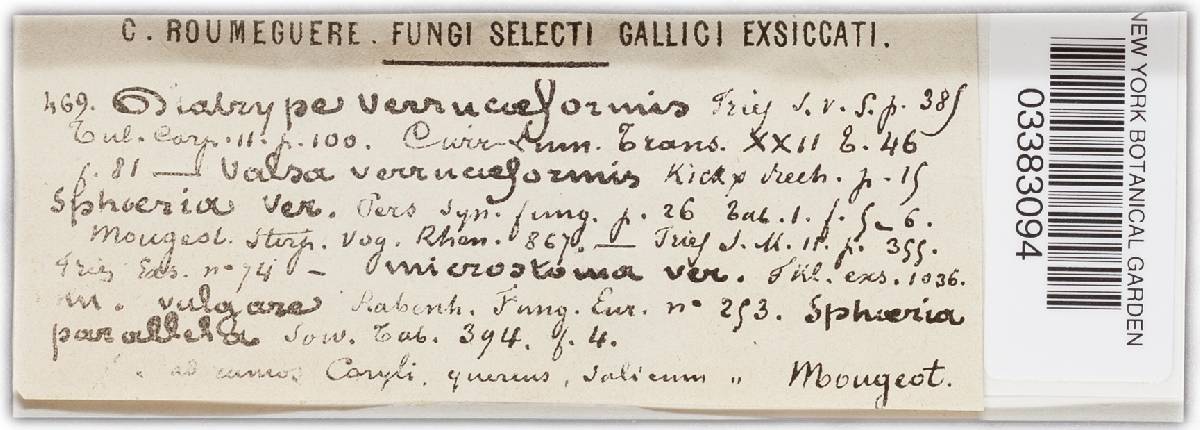 C. ROUMEGUERE. FUNGI SELECTI GALLICI EXSICCATI.
469. Diatrype verrucæformis Fries S. v. S. p. 385
Tul. Carp. 11. p. 100. Curr Linn. Trans. XXII t. 46
f. 81 — Valsa verrucæformis Kickx Rech. p. 15
Sphæria ver. Pers Syn. fung. p. 26 Tab. 1. f. 5_6.
Mougeot. Stirp. Vog. Rhen. 867. — Fries S. M. 11. p. 355.
Fries Exs. no 74 — microstoma ver. Fkl. exs. 1036.
m. vulgare Rabenh. Fung. Eur. no 253. Sphæria
parallela Sow. Tab. 394. f. 4.
ad ramos Coryli, quercus, Salicum „ Mougeot.
NEW YORK BOTANICAL GARDEN
03383094